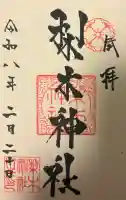 奉拝
梨木神社
令和八年二月二十日